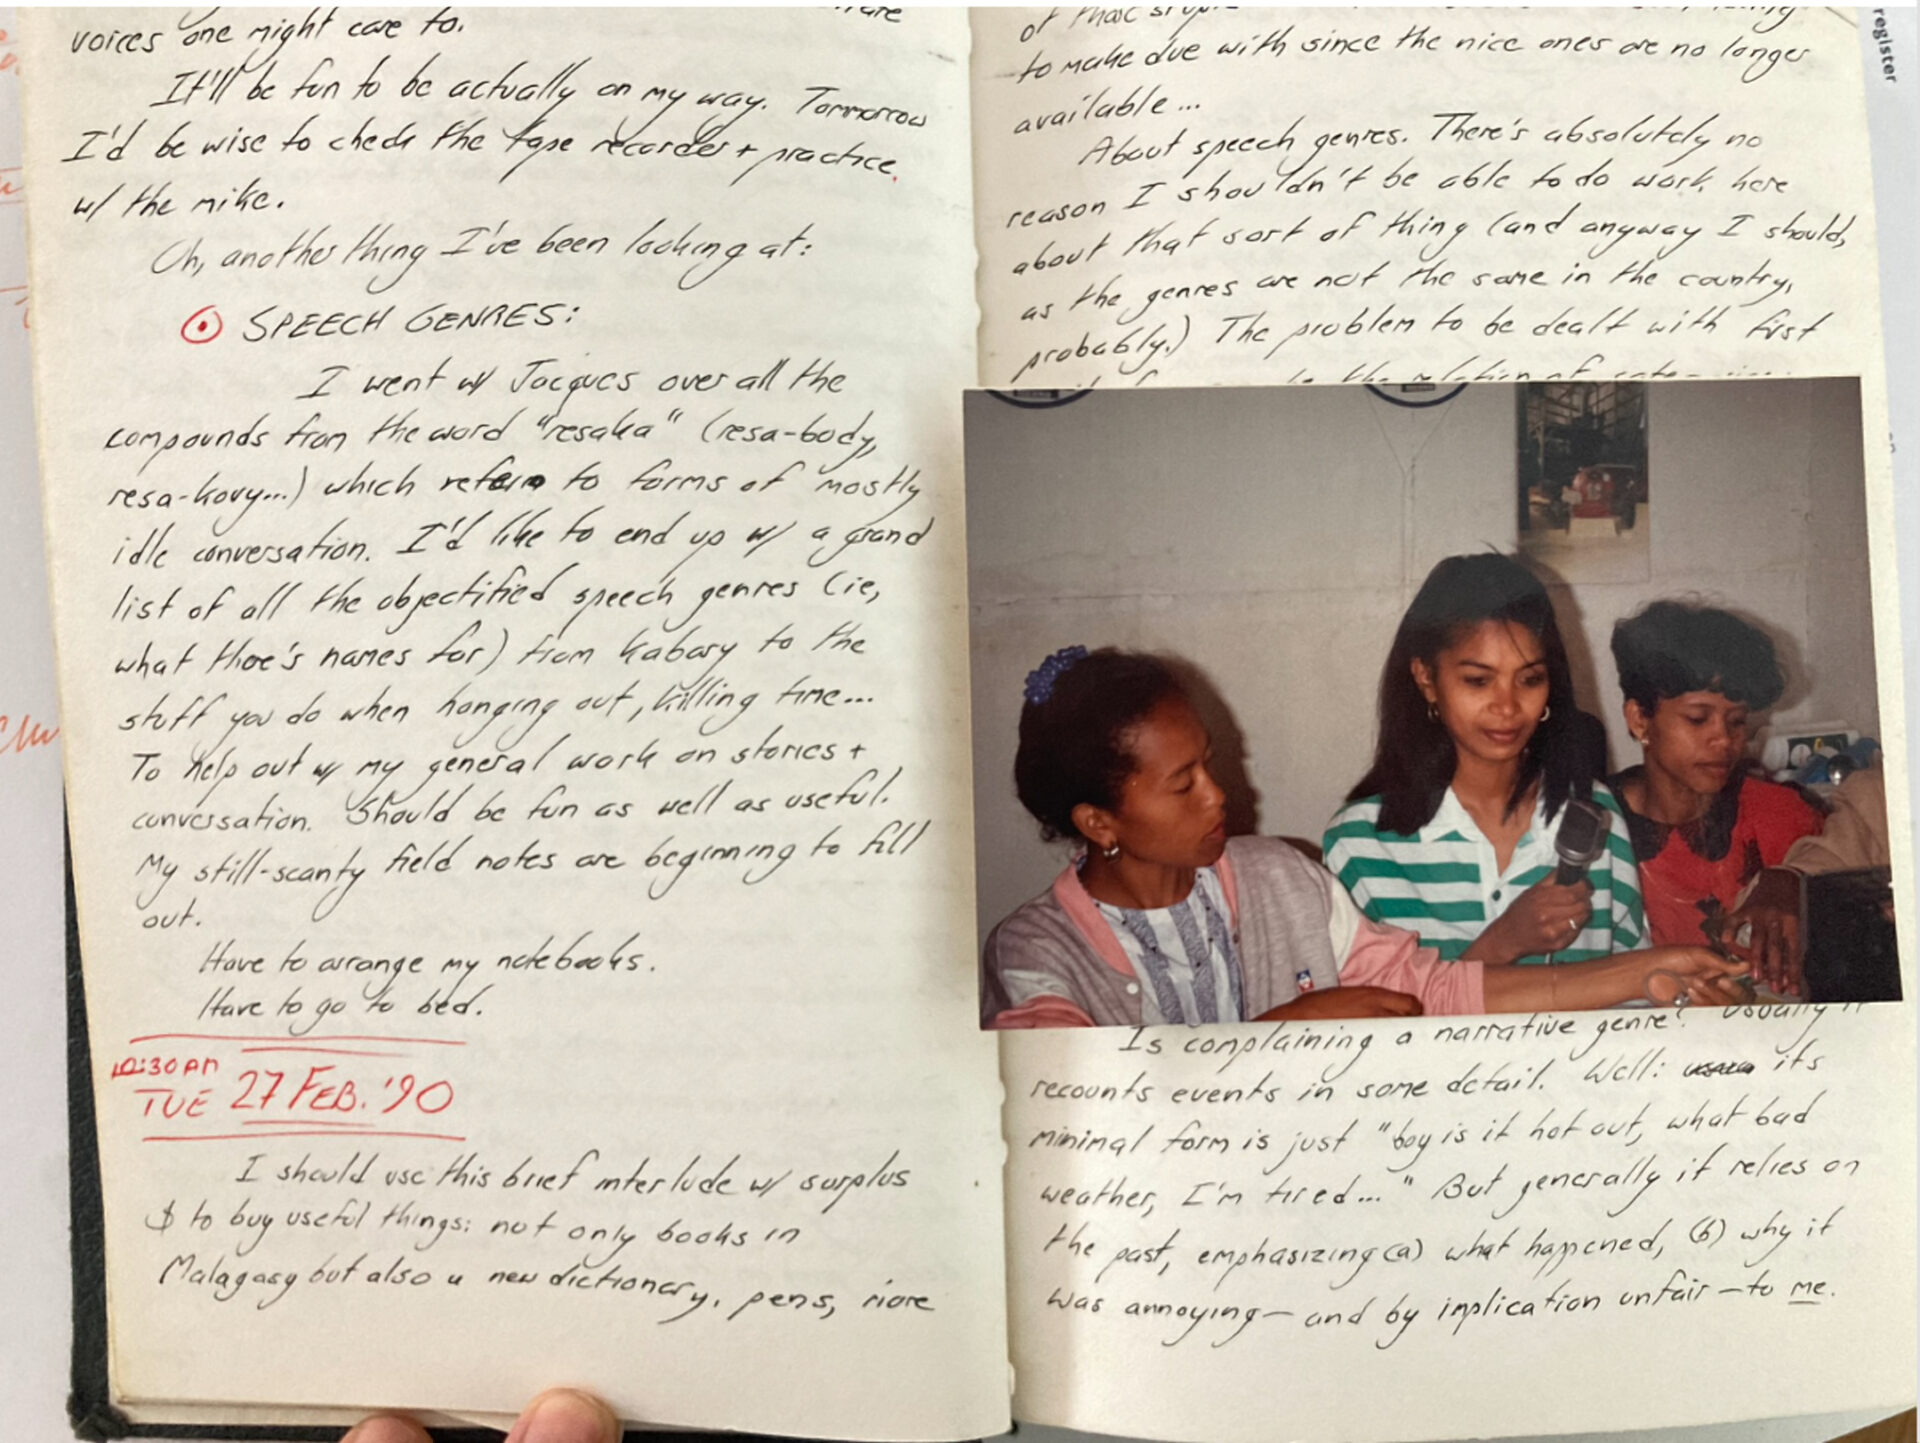 voices one might care to.
It'll be fun to be actually on my way. Tommorrow
I'd be wise to check the tape recorder + practice
w/ the mike.
Oh, another thing I've been looking at:
SPEECH GENRES:
I went w/ Jacques over all the
compounds from the word "resaka" (resa-body,
resa-kovy...) which refer to forms of mostly
idle conversation. I'd like to end up w/ a grand
list of all the objectified speech genres (ie,
what there's names for) from kabary to the
stuff you do when hanging out, killing time...
To help out w/ my general work on stories +
conversation. Should be fun as well as useful.
My still-scanty field notes are beginning to fill
out.
Have to arrange my notebooks.
Have to go to bed.
TUE 27 FEB. '90
I should use this brief interlude w/ surplus
$ to buy useful things: not only books in
Malagasy but also a new dictionary, pens, more
to make due with since the nice ones are no longer
available...
About speech genres. There's absolutely no
reason I shouldn't be able to do work here
about that sort of thing (and anyway I should,
as the genres are not the same in the country,
probably.) The problem to be dealt with first
the relation of
Is complaining a narrative genre? Usually it
recounts events in some detail. Well: its
minimal form is just "boy is it hot out, what bad
weather, I'm tired..." But generally it relies on
the past, emphasizing (a) what happened, (b) why it
was annoying — and by implication unfair — to me.
register